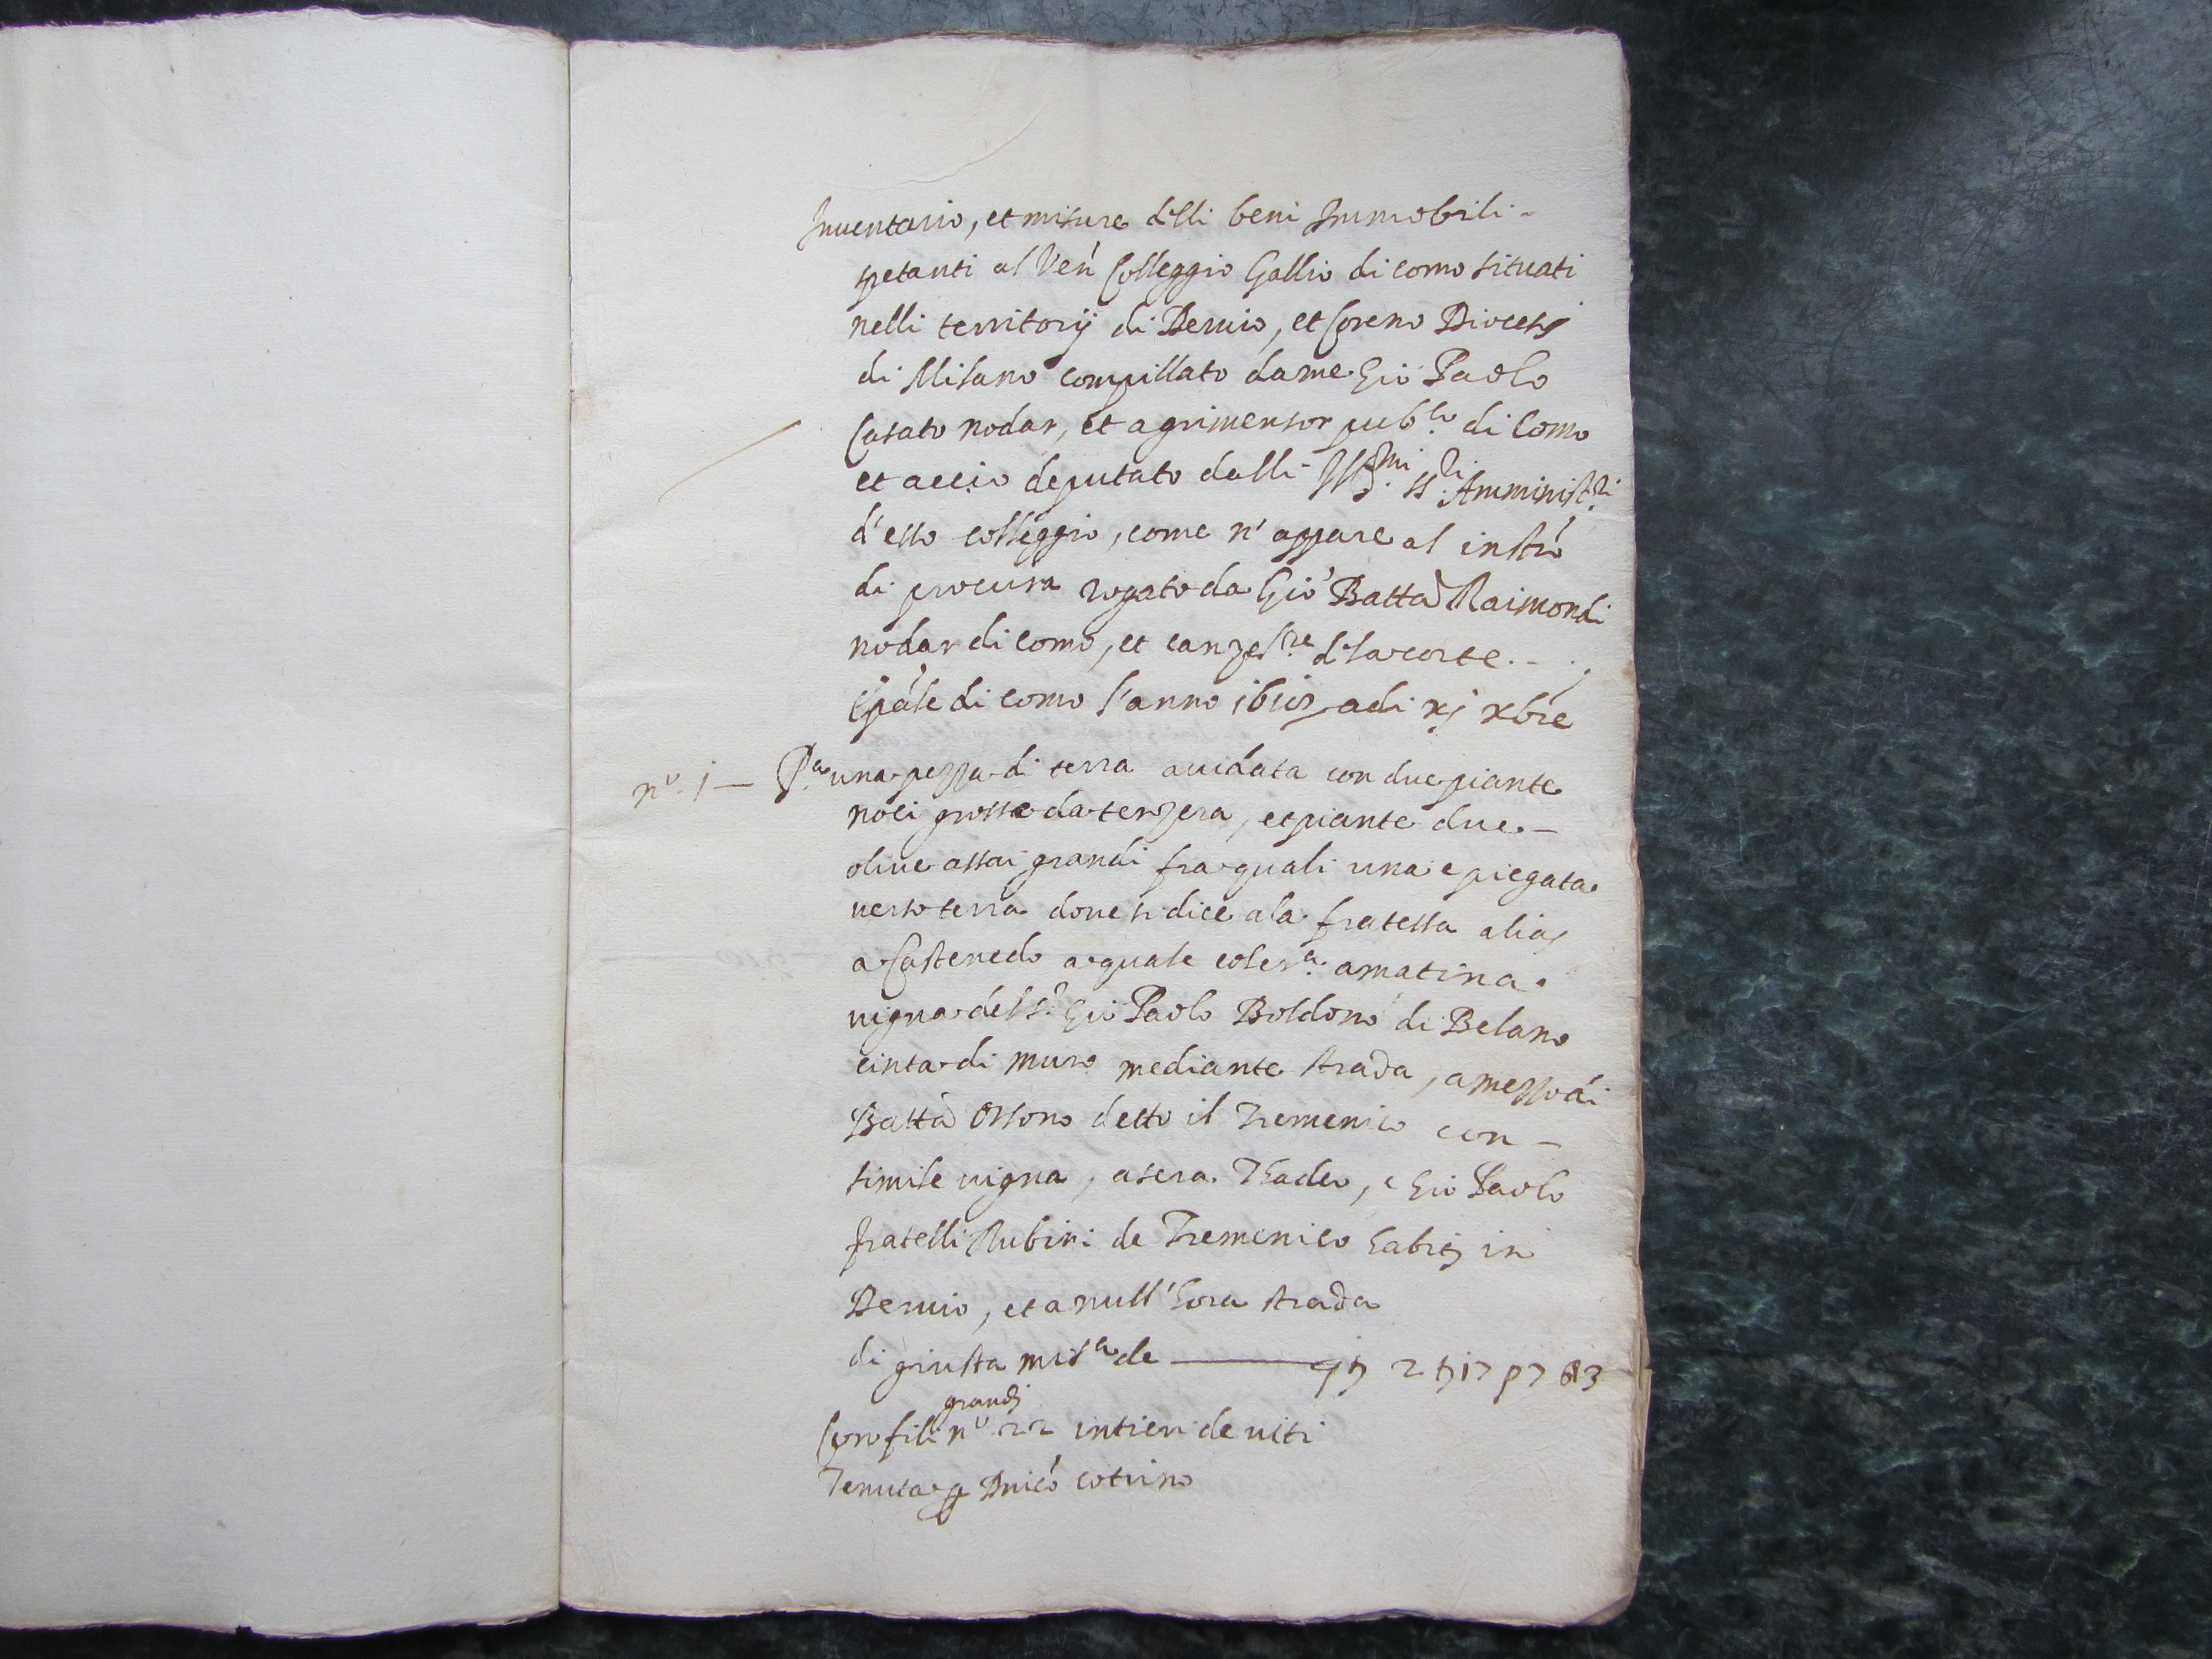 Inuentario, et misure delli beni Immobili -
spetanti al Ven. Colleggio Gallio di como situati
nelli territorij di Deruio, et Coreno Diocesi
di Milano compillato da me Gio Paolo
Casato nodar, et agrimensor pub.co di Como
et accio deputato dalli Ill.mi SS.ri Amminist.ri
d'esso colleggio, come n'appare al instro
di procura rogato da Gio Batta Raimondi
nodar di como, et canzel.re de la corte . - .
Epale di como l'anno adi xj xbre
n.o j — P.a una pezza di terra auidata con due piante
noci grosse da terzera, et piante due. —
oliue assai grandi fra quali una e piegata
uerso terra doue si dice ala fratessa alias
a Castenedo a quale coler.a a matina .
uigna del s.r Gio Paolo Boldono di Belano
cinta di muro mediante strada, a mezzo di
Batta Ossono detto il Tremenico con —
simile uigna, a sera Thadeo, e Gio Paolo
fratelli Rubini de Tremenico habit. in
Deruio, et a null'hora strada
di giusta mis.a de ——— 2 17 p 7
Con fili grandi n.o 22 intieri de uiti
Tenuta p Dnico cotrino